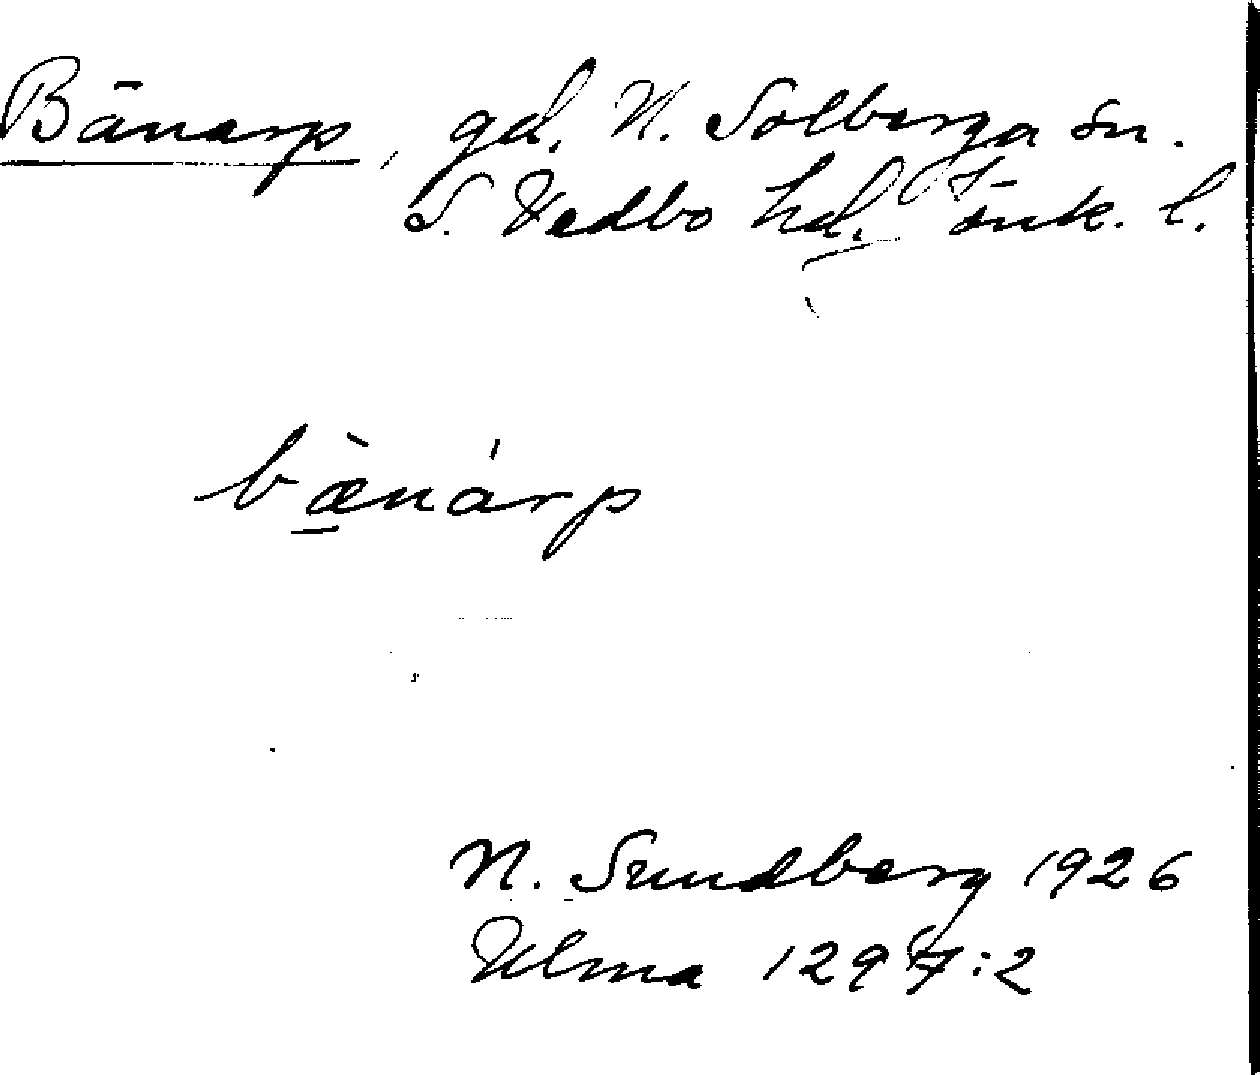 Bänarp, gd. N. Solberga sn.
S. Vedbo hd. Jönk. l.
bæ̀nárp
N. Sundberg 1926
Ulma 1297:2